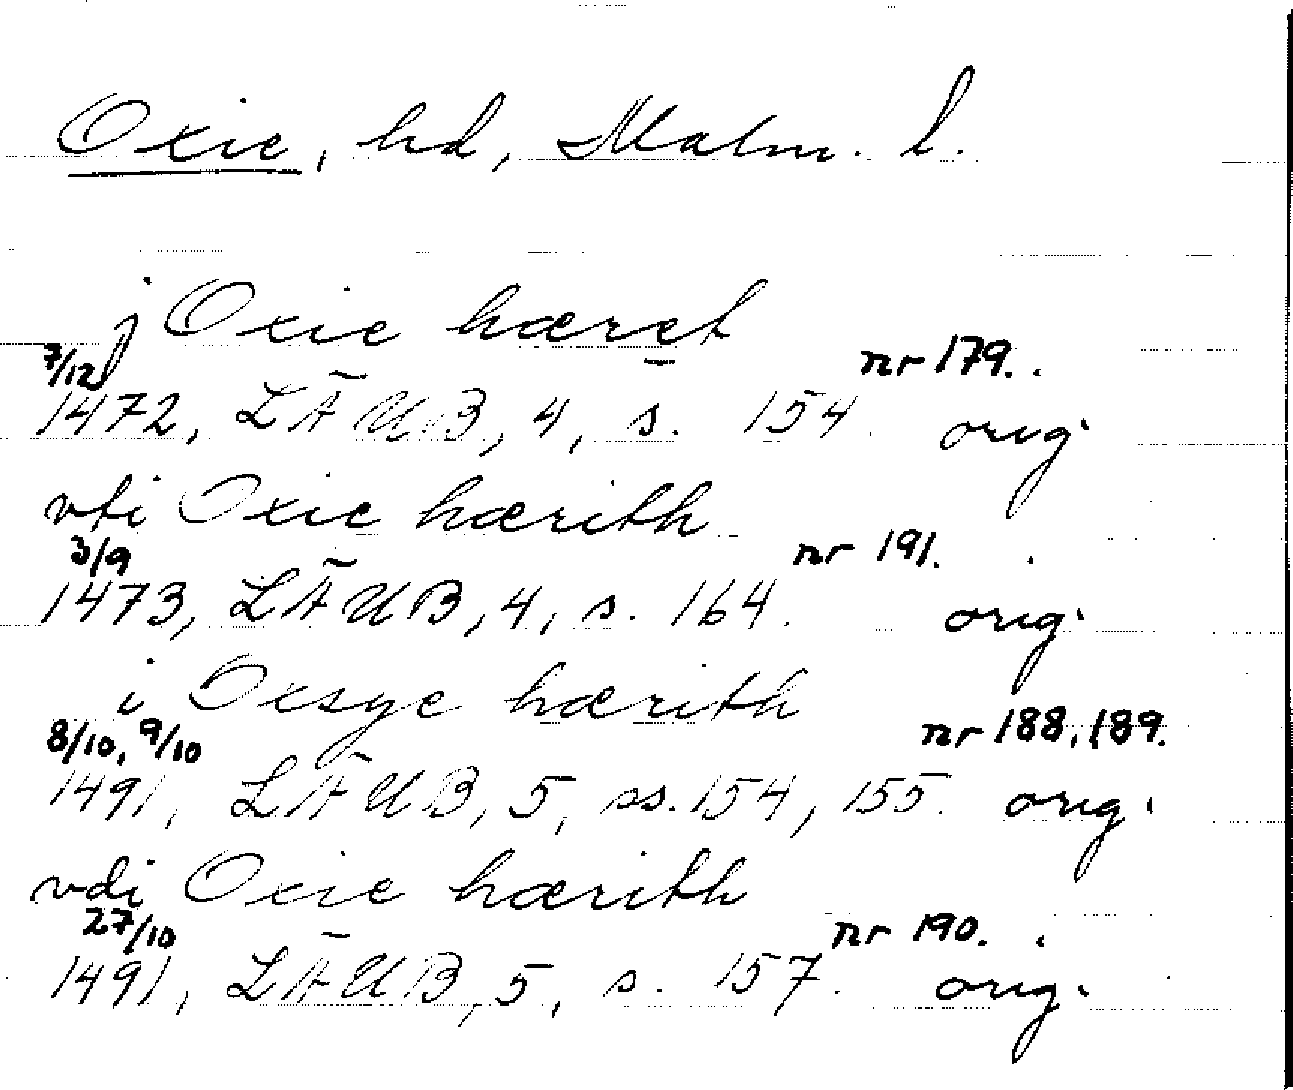 Oxie, hd, Malm. l.
j Oxie hæret
7/12 nr 179.
1472, LÄUB, 4, s. 154 orig.
vti Oxie hærith
3/9 nr 191.
1473, LÄUB, 4, s. 164. orig.
i Oxsye hærith
8/10, 9/10 nr 188, 189.
1491, LÄUB, 5, ss. 154, 155. orig.
vdi Oxie hærith
27/10 nr 190.
1491, LÄUB, 5, s. 157. orig.